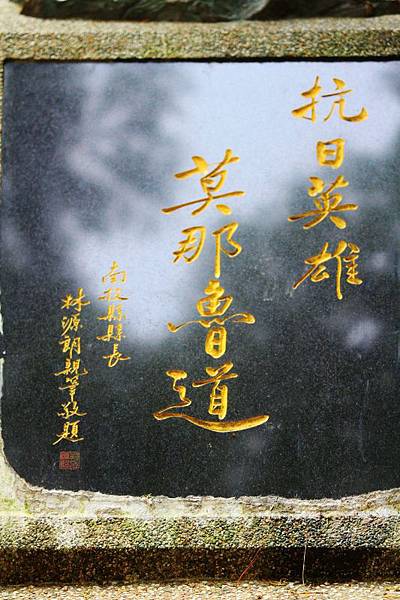 抗日英雄
莫那魯道
南投縣縣長
林源朗親筆敬題